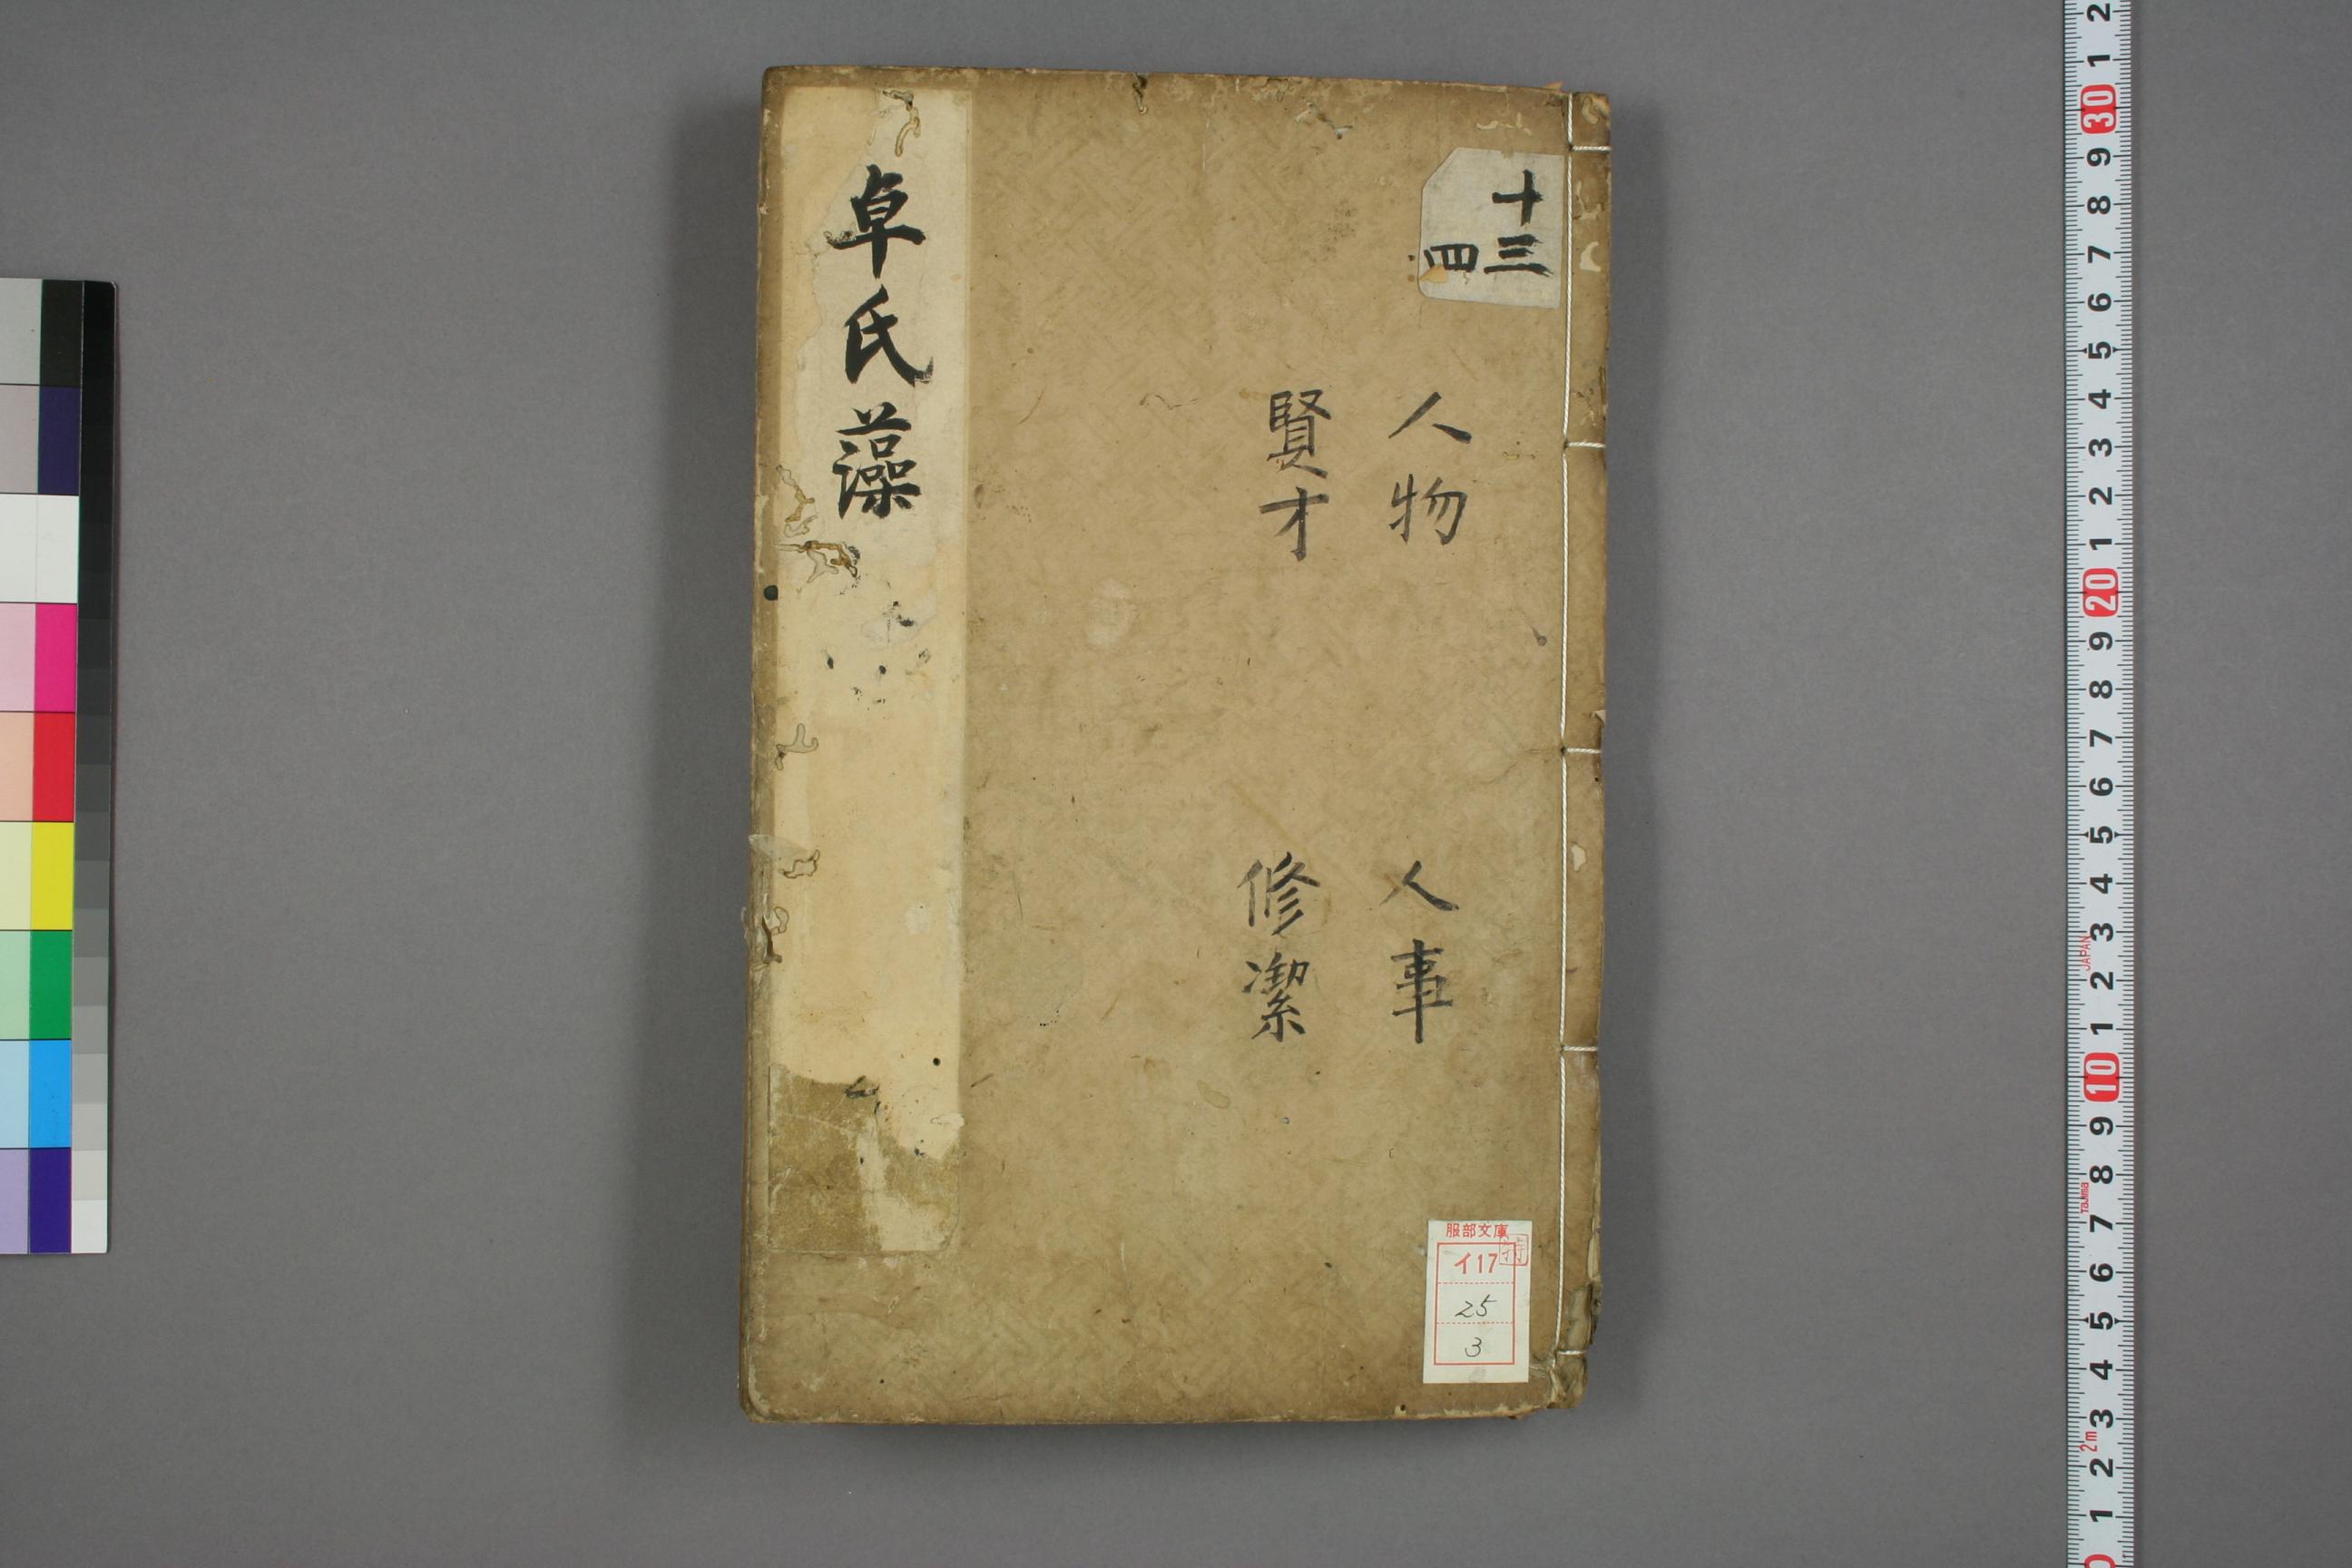 十三
四
人物
人事
賢才
修潔
卓氏藻
服部文庫
特
イ17
25
3
2 1 30 9 8 7 6 5 4 3 2 1 20 9 8 7 6 5 4 3 2 1 10 9 8 7 6 5 4 3 2 1 0
JAPAN
Tajima
2m